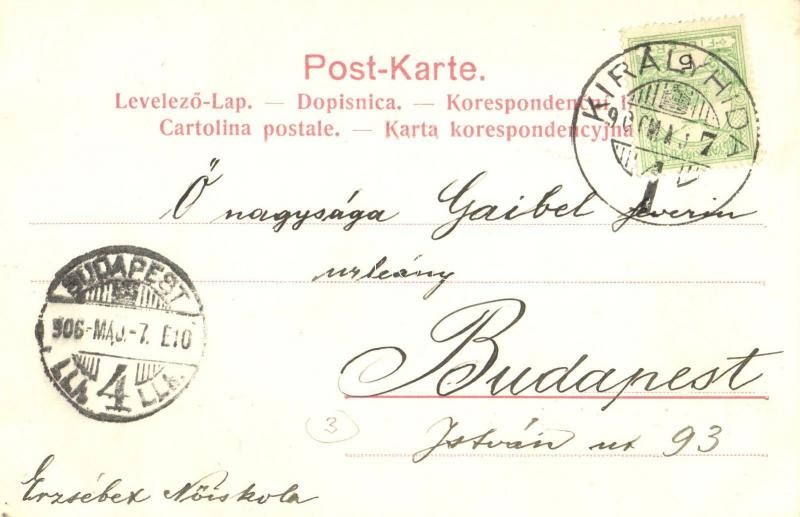 Post-Karte.
Levelező-Lap. — Dopisnica. — Korespondenční l
Cartolina postale. — Karta korespondencyjna
KIRÁLYHIDA
906 MÁJ 7
Ő nagysága Gaibel Severin
urleány
Budapest
István ut 93
BUDAPEST
906-MÁJ.-7. E10
4
3
Erzsébet Nőiskola